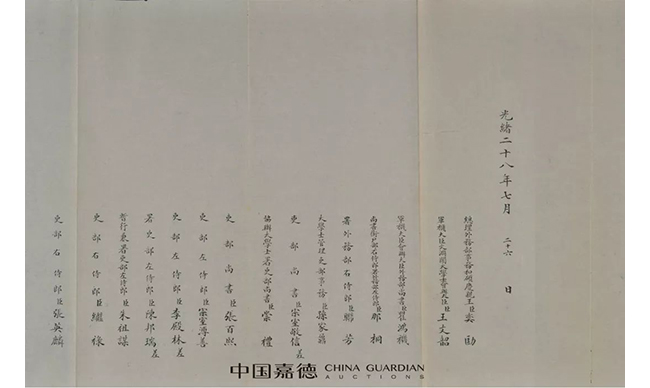 光緒二十八年七月 二十六 日
總理外務部事務和碩慶親王臣奕劻
軍機大臣文淵閣大學士會辦大臣臣王文韶
軍機大臣會辦大臣外務部尚書臣瞿鴻禨
那桐
署外務部右侍郎臣聯芳
大學士管理吏部事務臣孫家鼐
吏部尚書臣宗室敬信差
協辦大學士署吏部尚書臣崇禮
吏部尚書臣張百熙
吏部左侍郎臣宗室溥善
吏部左侍郎臣李殿林差
署吏部左侍郎臣陳邦瑞差
暫行兼署吏部左侍郎臣朱祖謀
吏部右侍郎臣繼祿
吏部右侍郎臣張英麟
中国嘉德 CHINA GUARDIAN
AUCTIONS